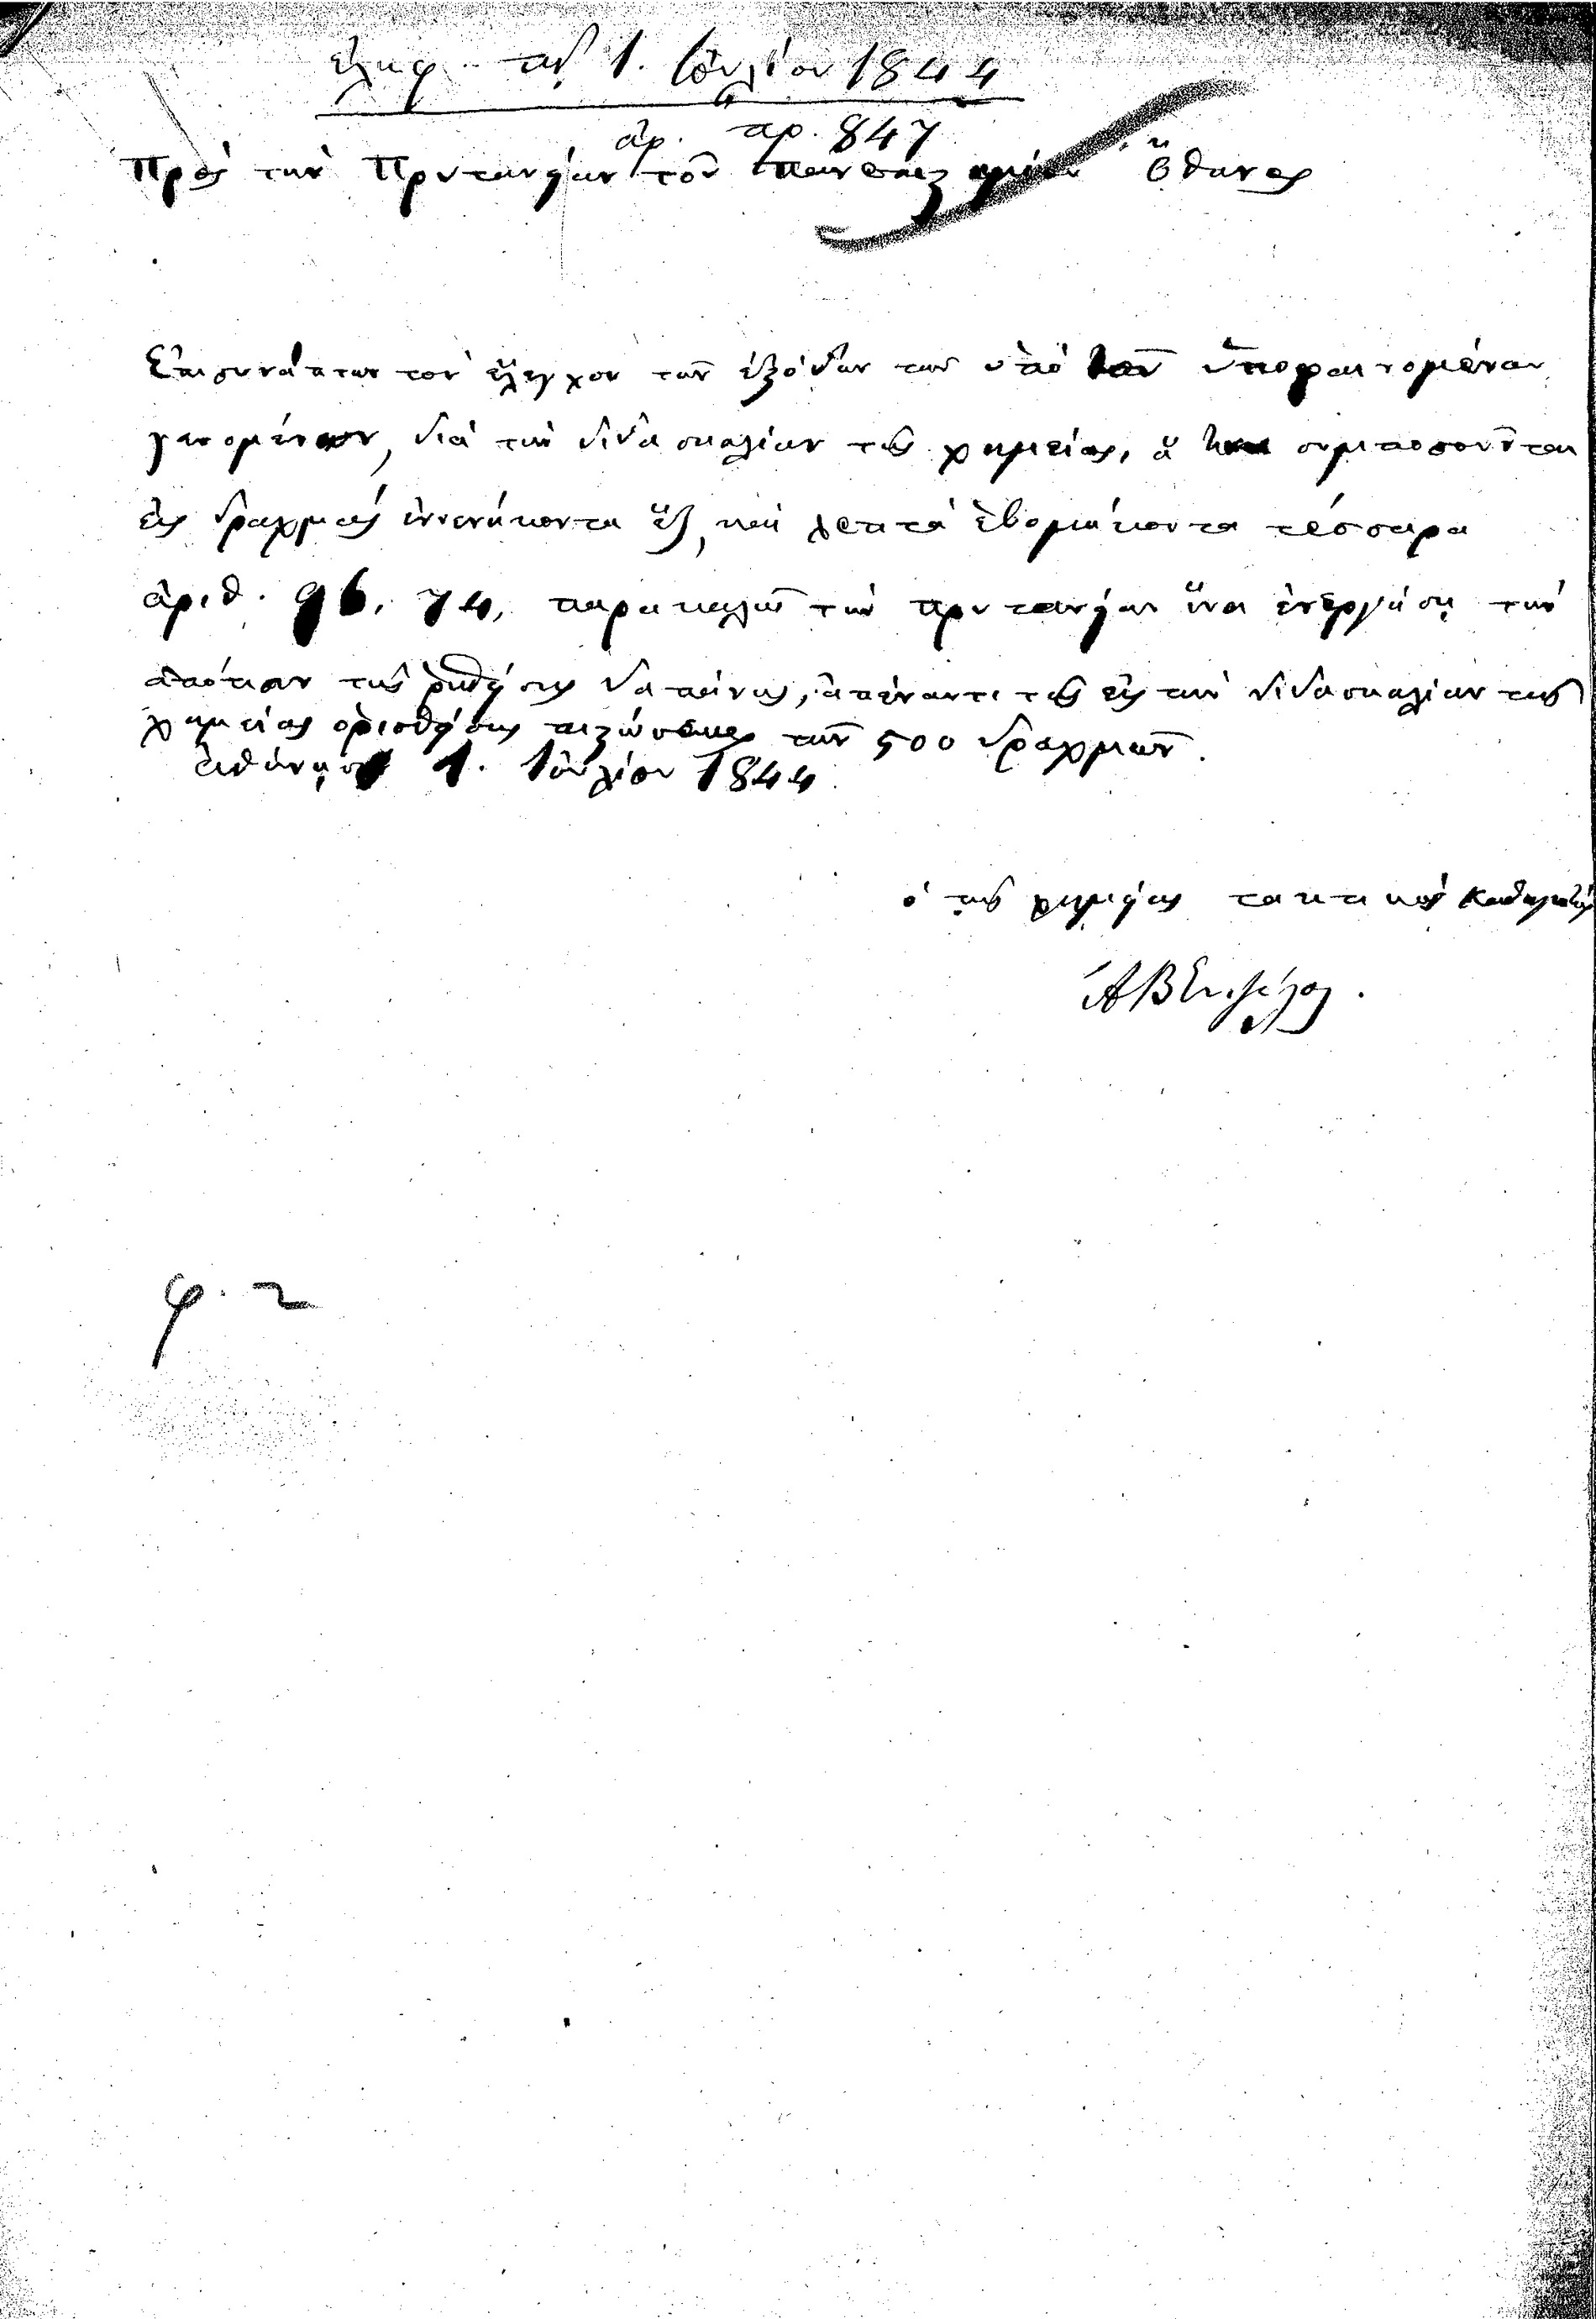 ἐλήφ. τῇ 1. Ἰουλίου 1844
ἀρ. πρ. 847
Πρὸς τὴν Πρυτανείαν τοῦ Πανεπιστημίου Ὄθωνος
Ἐπισυνάπτων τὸν ἔλεγχον τῶν ἐξόδων τῶν ὑπὸ τοῦ
γενομένων, διὰ τὴν διδασκαλίαν τῆς χημείας, ἃ συμποσοῦνται
εἰς δραχμὰς ἐννενήκοντα ἓξ, καὶ λεπτὰ ἑβδομήκοντα τέσσαρα
ἀριθ. 96. 74, παρακαλῶ τὴν πρυτανείαν ἵνα ἐνεργήσῃ τὴν
ἀπότισιν τῆς ῥηθείσης δαπάνης, ἀπέναντι τῆς εἰς τὴν διδασκαλίαν τῆς
χημείας ὁρισθείσης πιστώσεως τῶν 500 δραχμῶν.
Ἀθήνησι 1. Ἰουλίου 1844.
ὁ τῆς χημείας τακτικὸς καθηγητὴς
φ. 2